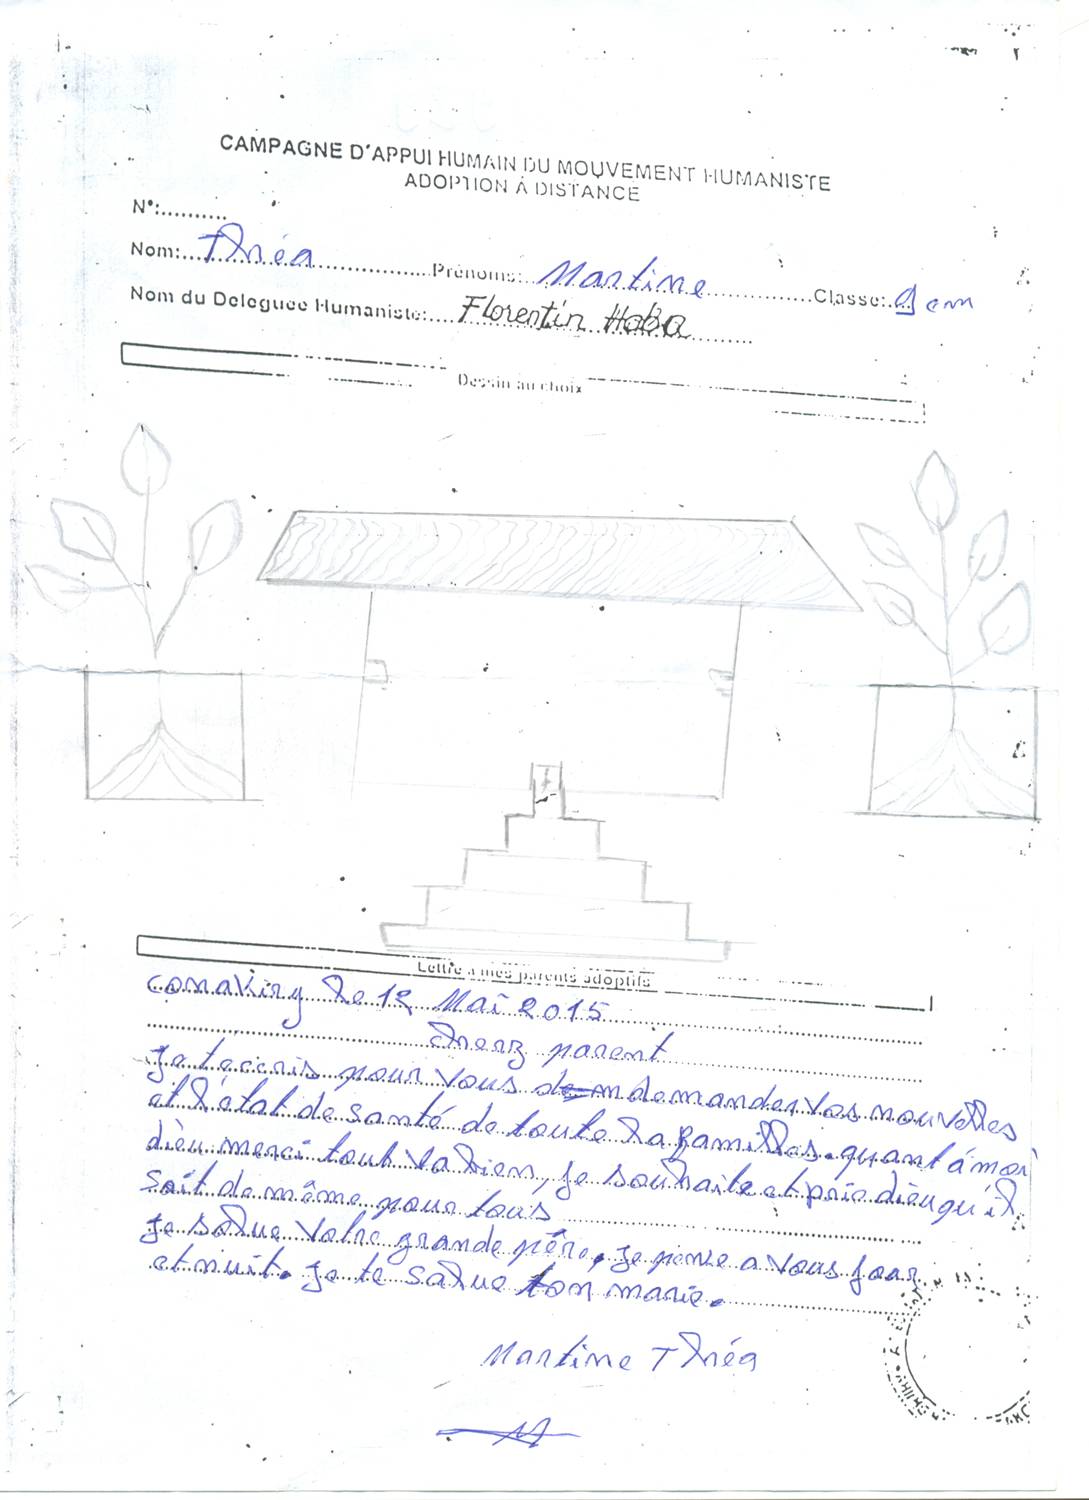 CAMPAGNE D'APPUI HUMAIN DU MOUVEMENT HUMANISTE
ADOPTION À DISTANCE
N°:..........
Nom: Thréa Prénoms: Martine Classe: 9 em
Nom du Deleguee Humaniste: Florentin Haba
Dessin au choix
Lettre a mes parents adoptifs
conakiry le 12 Mai 2015
cherz parent
je t'eccris pour vous demandes vos nouvelles
et l'état de santé de toute la familles. quant á moi
dièu merci tout va bien, je souhaite et prie dièu qu'il
soit de même pour tous
je salue votre grande père, je pense a vous jour
et nuit. je te salue ton marie.
Martine Thréa